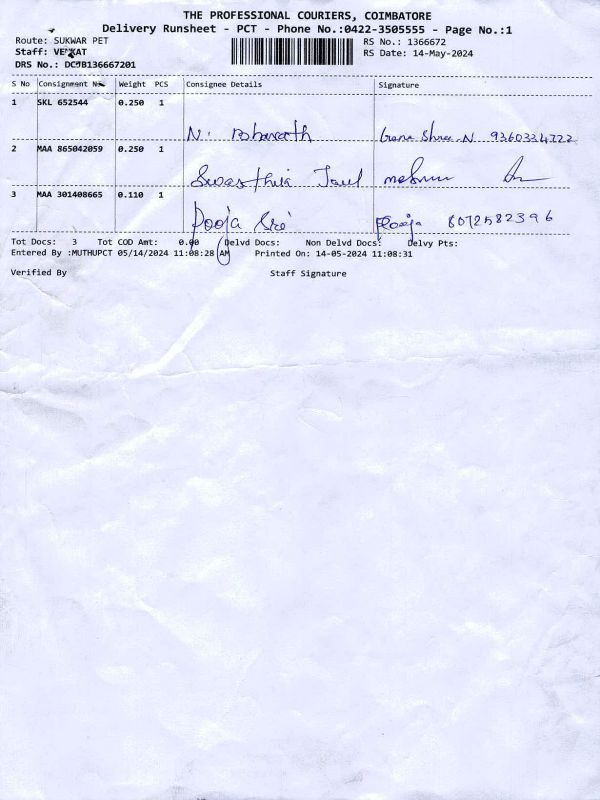 THE PROFESSIONAL COURIERS, COIMBATORE
Delivery Runsheet - PCT - Phone No.:0422-3505555 - Page No.:1
Route: SUKWAR PET RS No.: 1366672
Staff: VENKAT RS Date: 14-May-2024
DRS No.: DCOB136667201
S No Consignment No Weight PCS Consignee Details Signature
1 SKL 652544 0.250 1
N. Bharath N 9360334722
2 MAA 865042059 0.250 1
3 MAA 301408665 0.110 1
Pooja Sri Pooja 8072582396
Tot Docs: 3 Tot COD Amt: 0.00 Delvd Docs: Non Delvd Docs: Delvy Pts:
Entered By :MUTHUPCT 05/14/2024 11:08:28 AM Printed On: 14-05-2024 11:08:31
Verified By Staff Signature